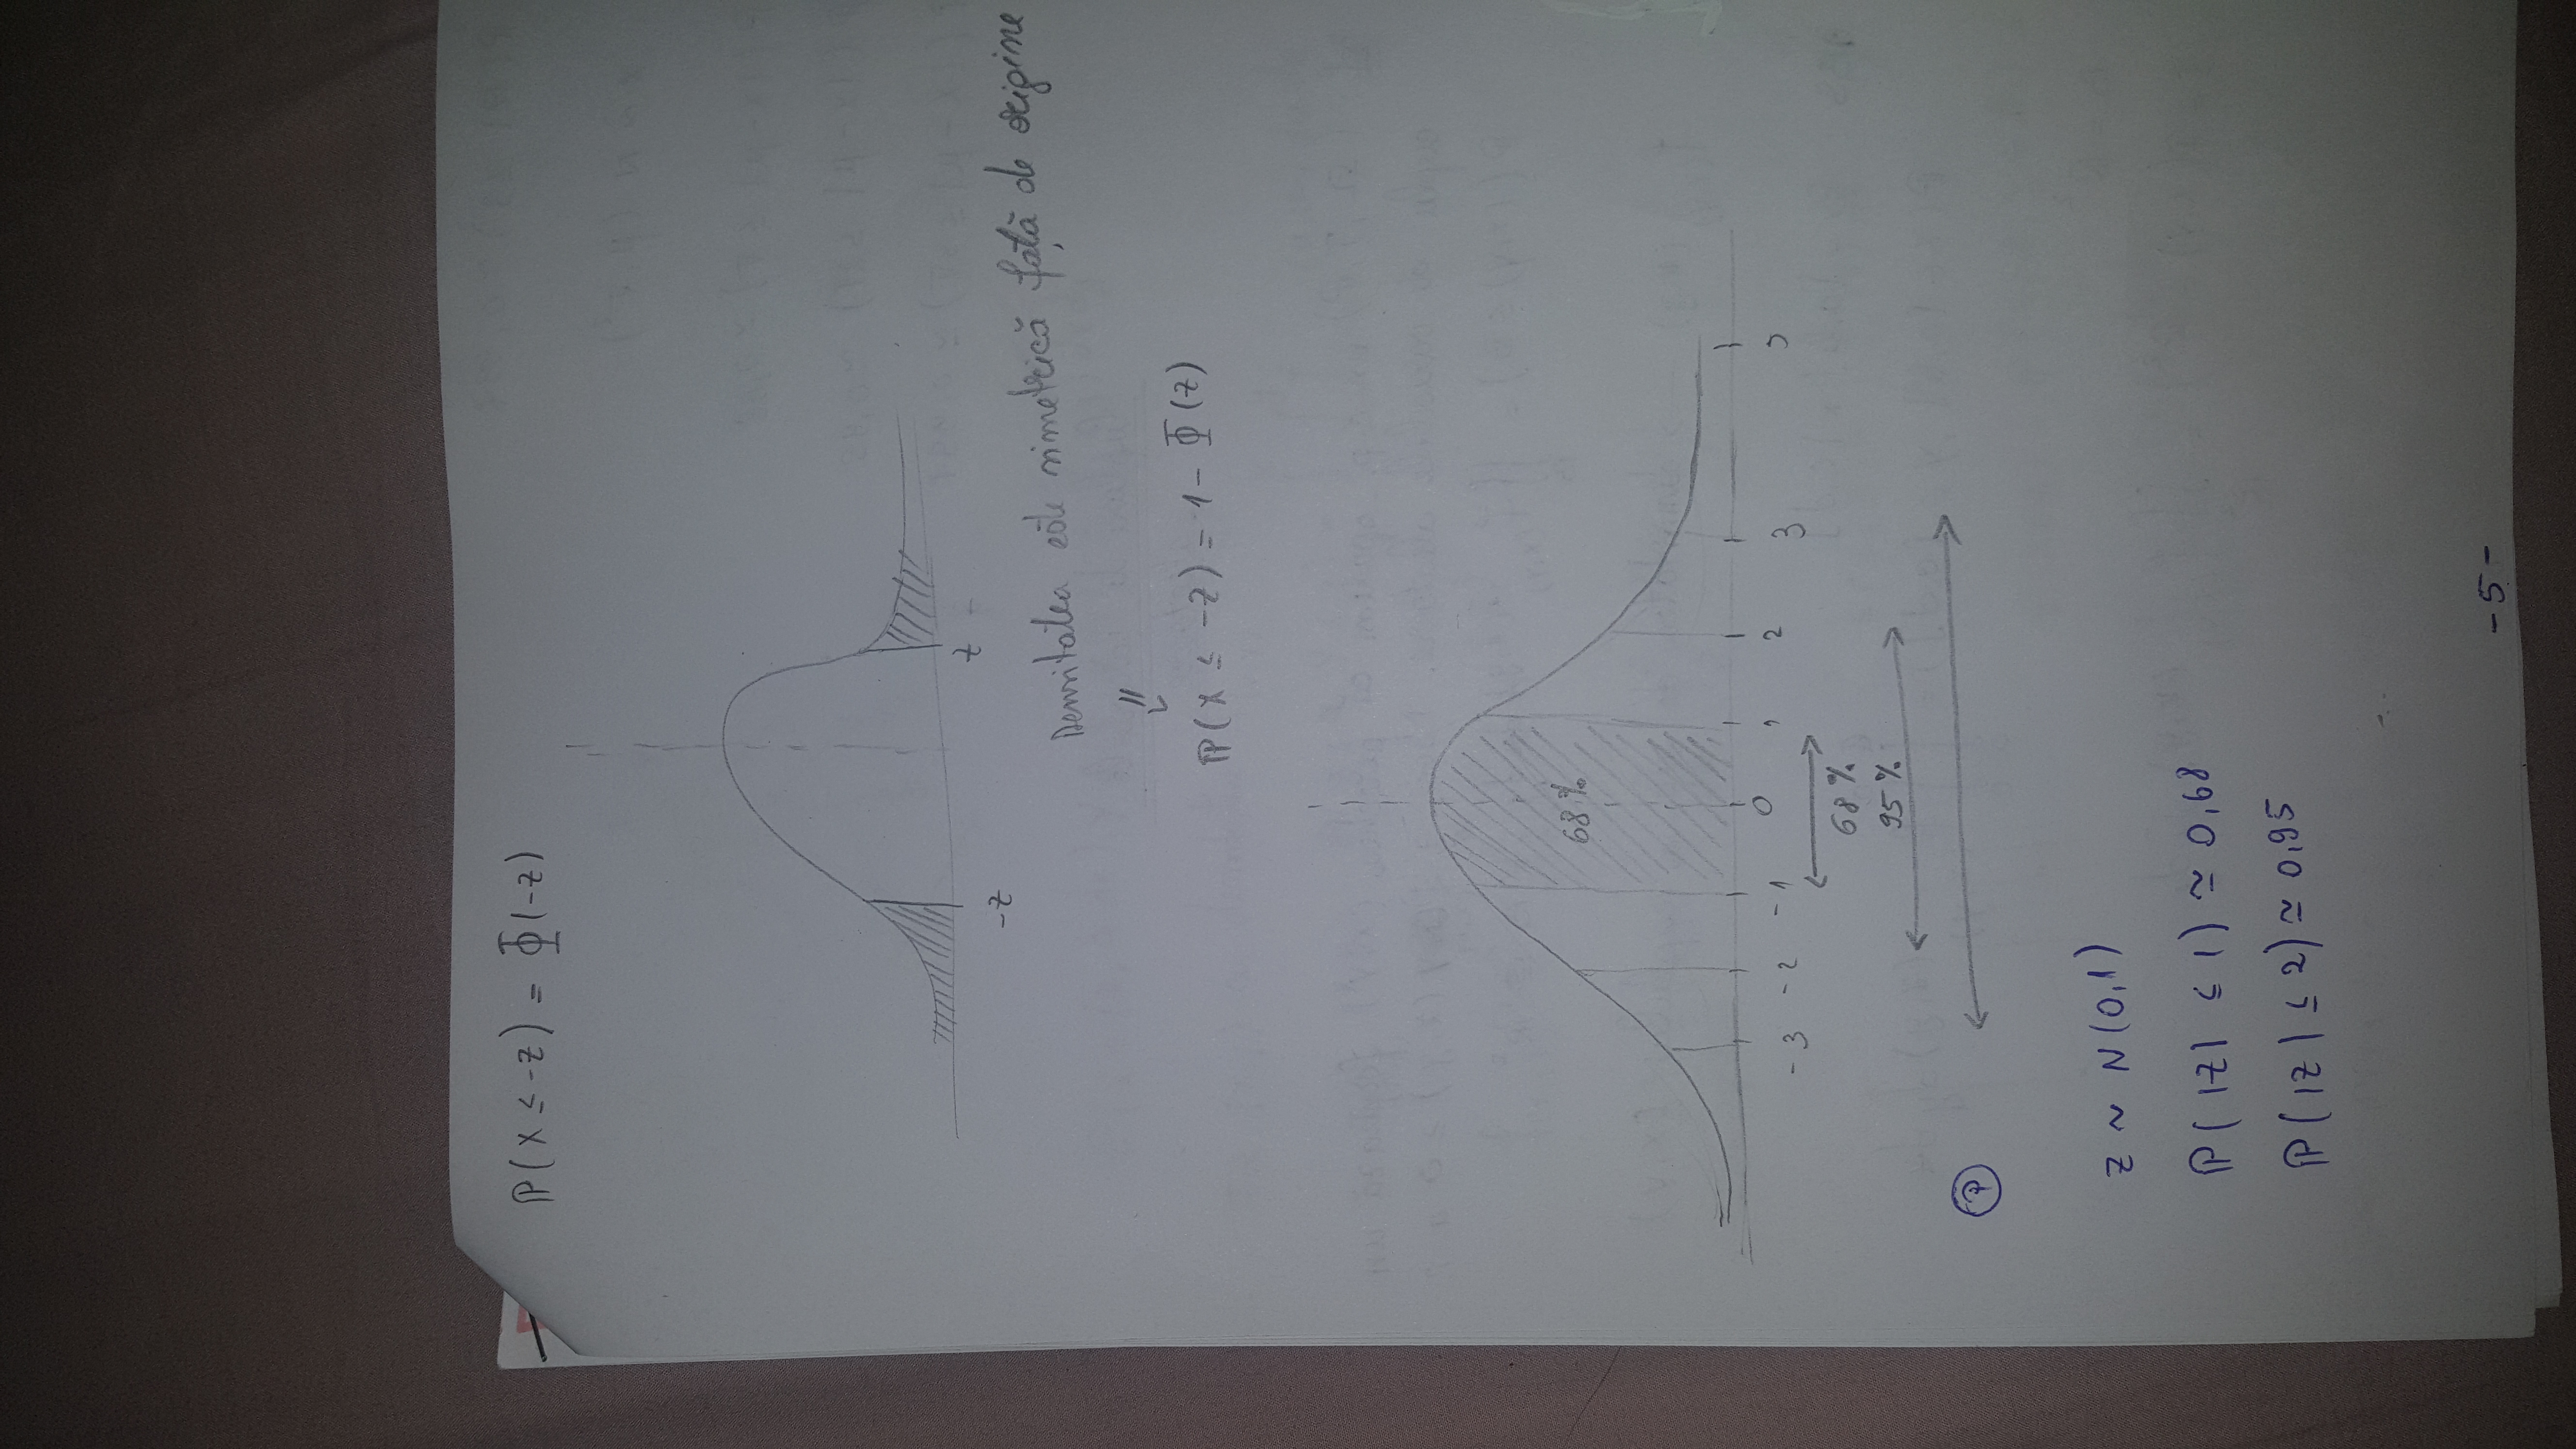 ℙ(X ≤ -z) = Φ(-z)
-z
z
Densitatea este simetrică față de origine
⇓
ℙ(X ≤ -z) = 1 - Φ(z)
68%
-3 -2 -1 0 1 2 3
68%
95%
P
Z ~ N(0,1)
ℙ(|Z| ≤ 1) ≃ 0,68
ℙ(|Z| ≤ 2) ≃ 0,95
-5-